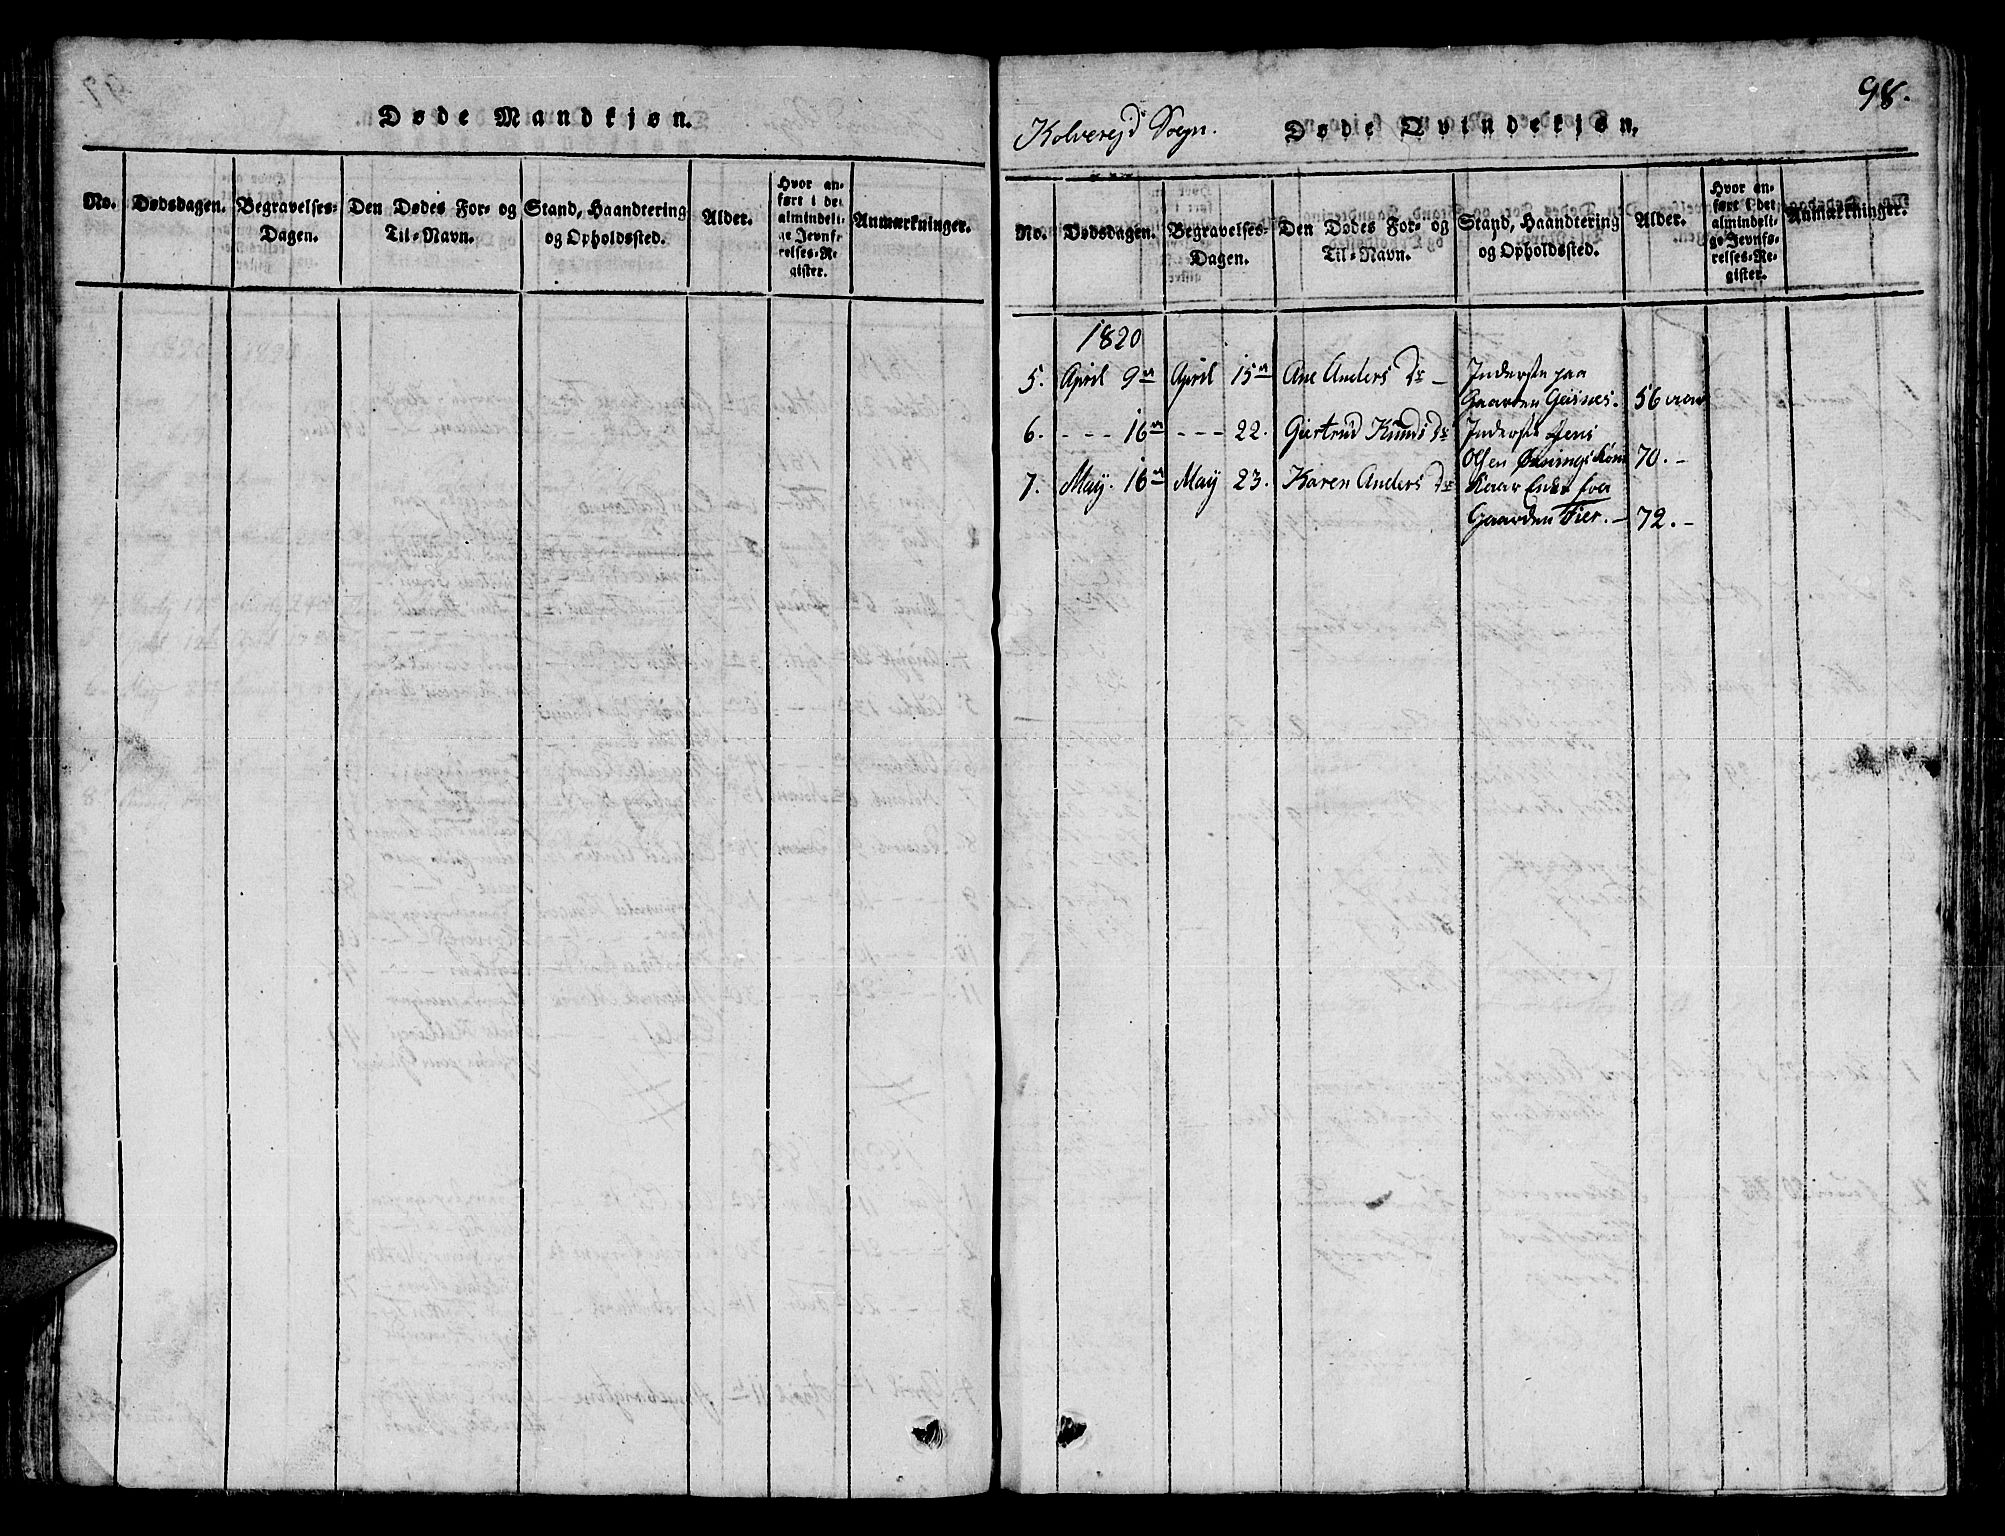 Døde Mandkjøn.
No.
Dødsdagen.
Begravelses-
Dagen.
Den Dødes For- og
Til-Navn.
Stand, Haandtering
og Opholdssted.
Alder.
Hvor an-
ført i det
almindeli-
ge Jevnfø-
relses-Re-
gister.
Anmærkninger.
98.
Kolverejd Sogn.
Døde Qvindekjøn.
No.
Dødsdagen.
Begravelses-
Dagen.
Den Dødes For- og
Til-Navn.
Stand, Haandtering
og Opholdssted.
Alder.
Hvor an-
ført i det
almindeli-
ge Jevnfø-
relses-Re-
gister.
Anmærkninger.
1820
5. April 9de April 15de Ane Anders Dr - Inderste paa
Gaarden Geisnes. 56
6. - - - 16de - - - 22. Giertrud Knuds Dr Inderste Jens
Olsen Kone 70. -
7. May. 16de May 23. Karen Anders Dr Kaar Enke fra
Gaarden Fier. - 72. -